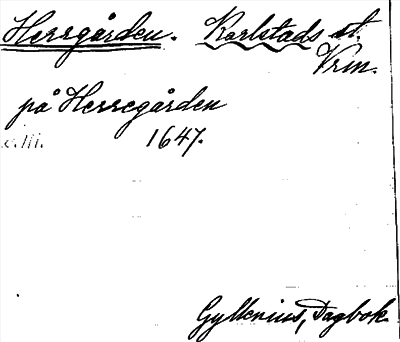 Herrgården. Karlstads st.
Vrm.
på Herregården
c. lll. 1647.
Gyllenius, Dagbok